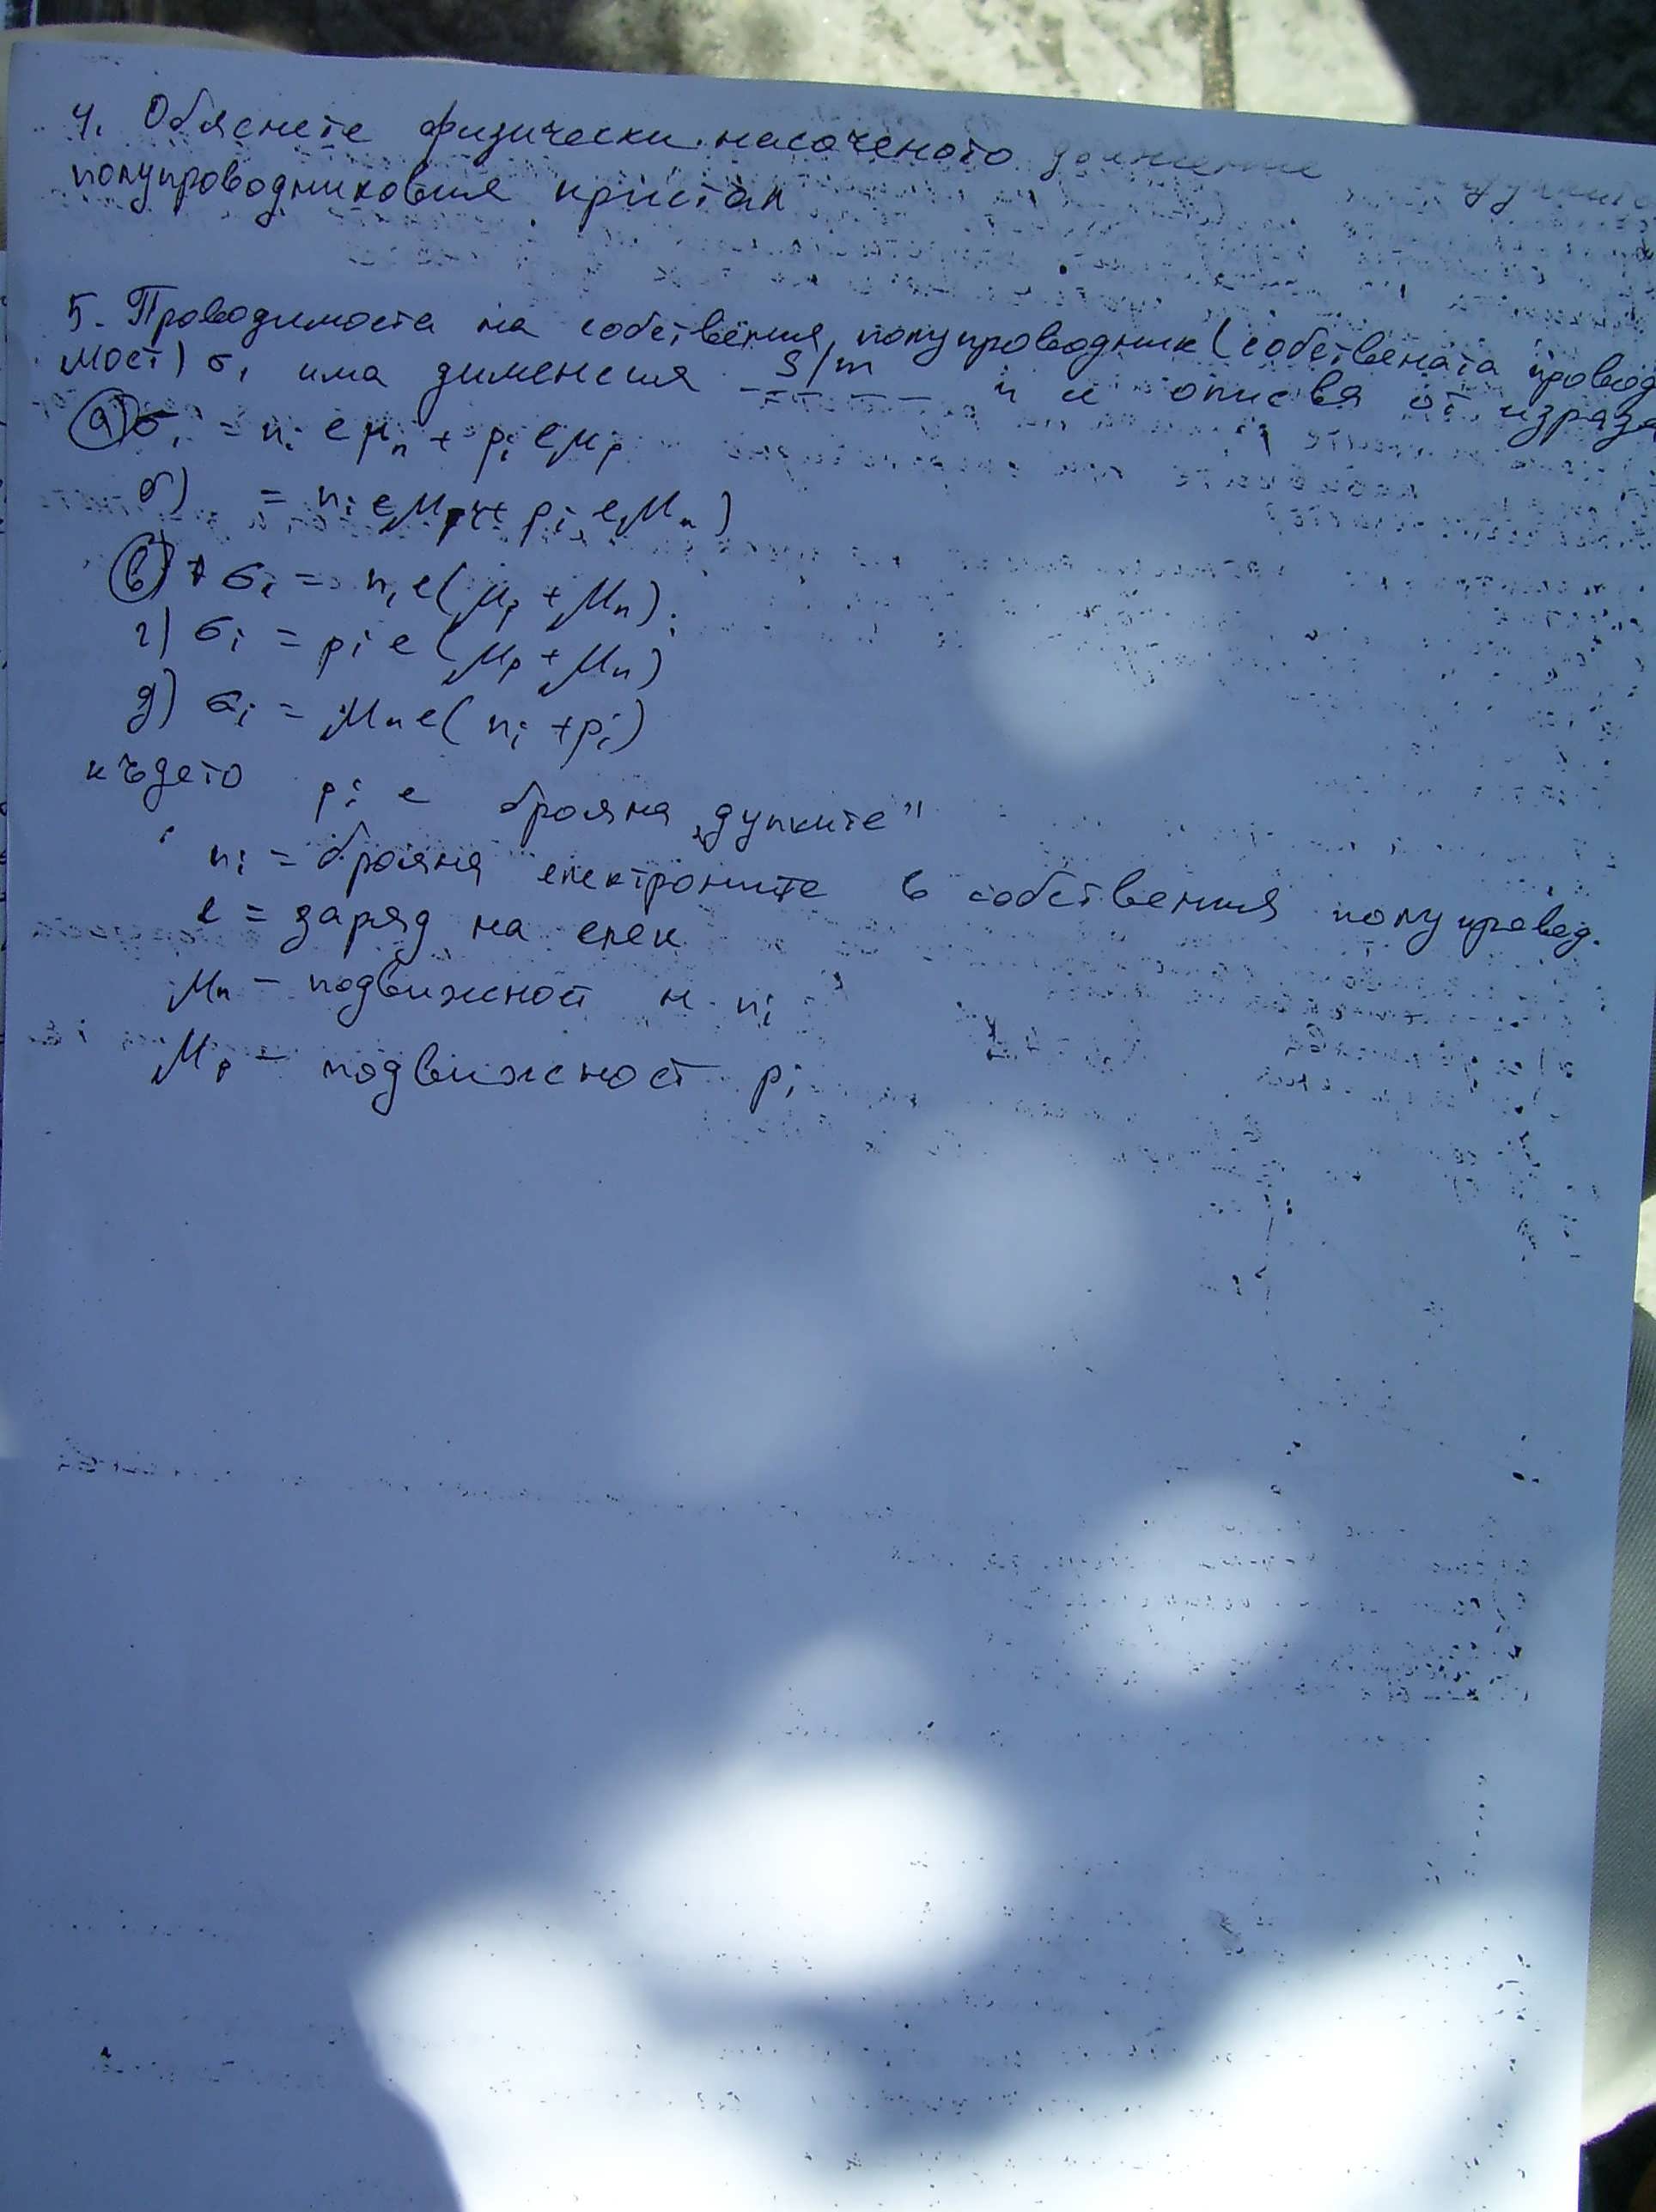 4. Обяснете физически насоченото движение
полупроводниковия кристал
5. Проводимоста на собствения полупроводник (собствената провод
мост) σi има дименсия S/m и се описва от израза
а) σi = ni e μn + pi e μp
б) = ni e μp + pi e μn)
в) σi = ni e (μp + μn)
г) σi = pi e (μp + μn)
д) σi = μn e (ni + pi)
където pi е броя на „дупките"
ni = броя на електроните в собствения полупровод.
e = заряд на елек
μn - подвижност н ni
μp - подвижност pi